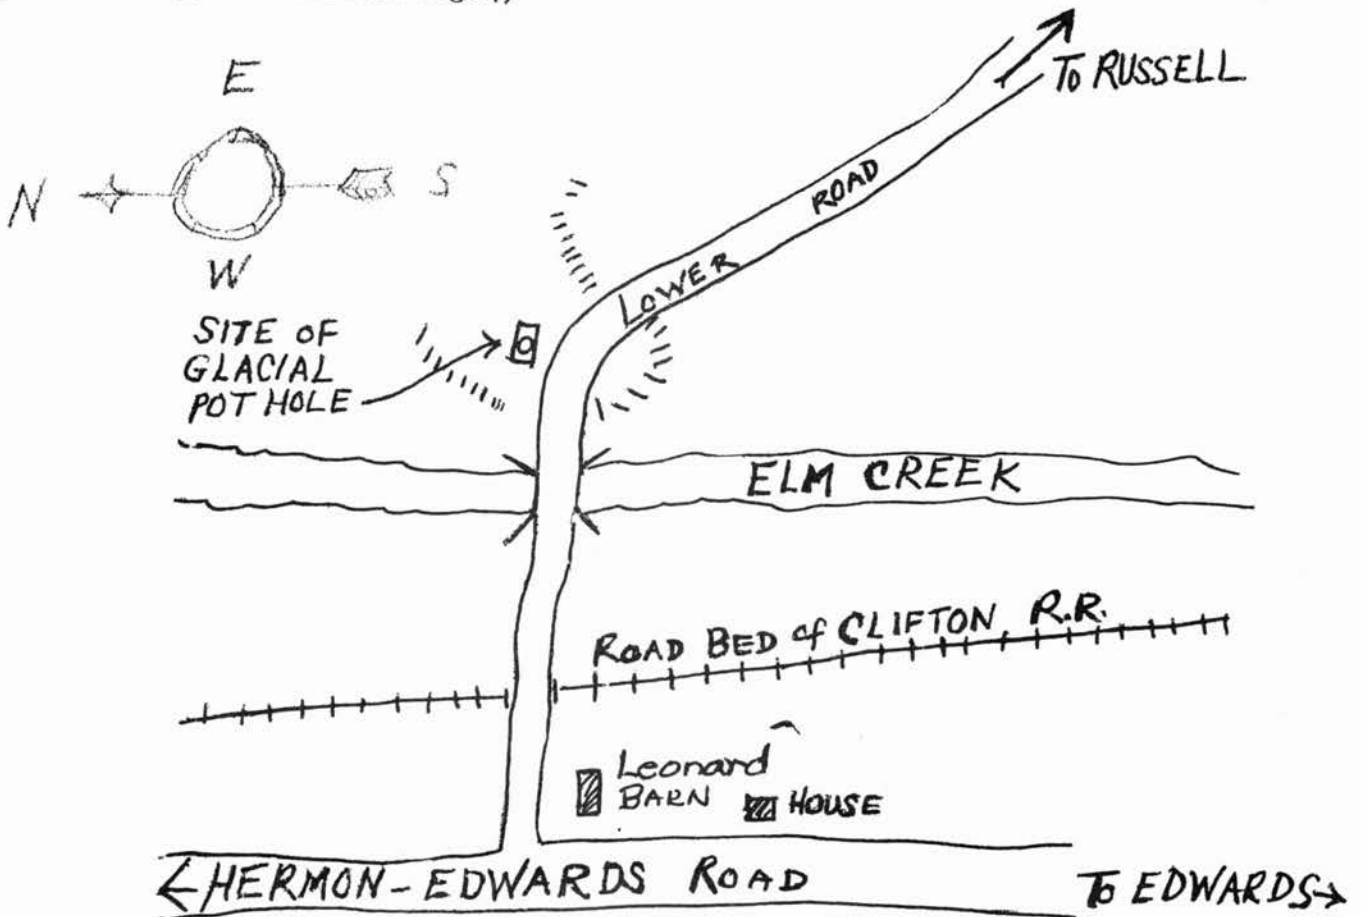 E
N
S
W
To RUSSELL
LOWER ROAD
SITE OF
GLACIAL
POT HOLE
ELM CREEK
ROAD BED of CLIFTON R.R.
Leonard
BARN
HOUSE
HERMON-EDWARDS ROAD
To EDWARDS